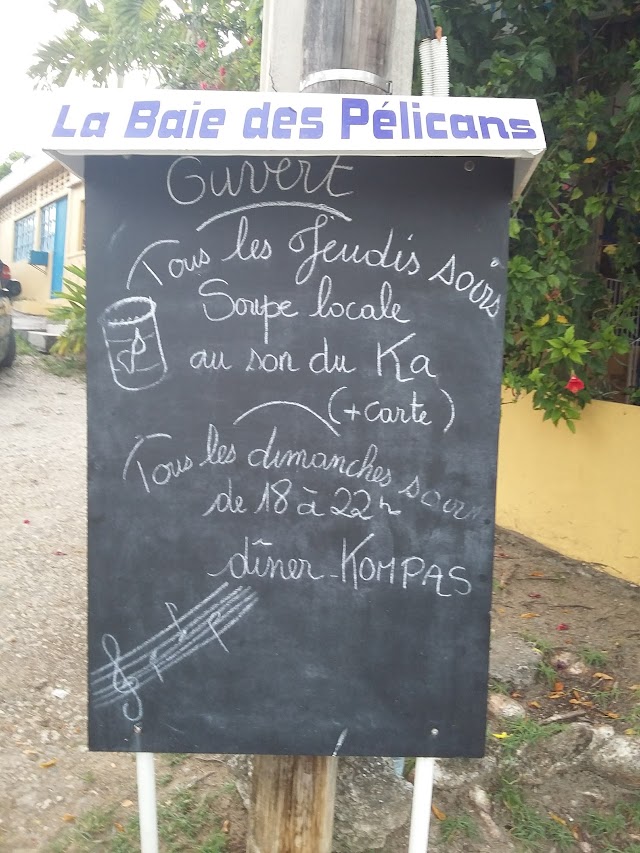 La Baie des Pélicans
Ouvert
Tous les Jeudis soirs
Soupe locale
au son du Ka
(+carte)
Tous les dimanches soirs
de 18 à 22h
dîner - KOMPAS